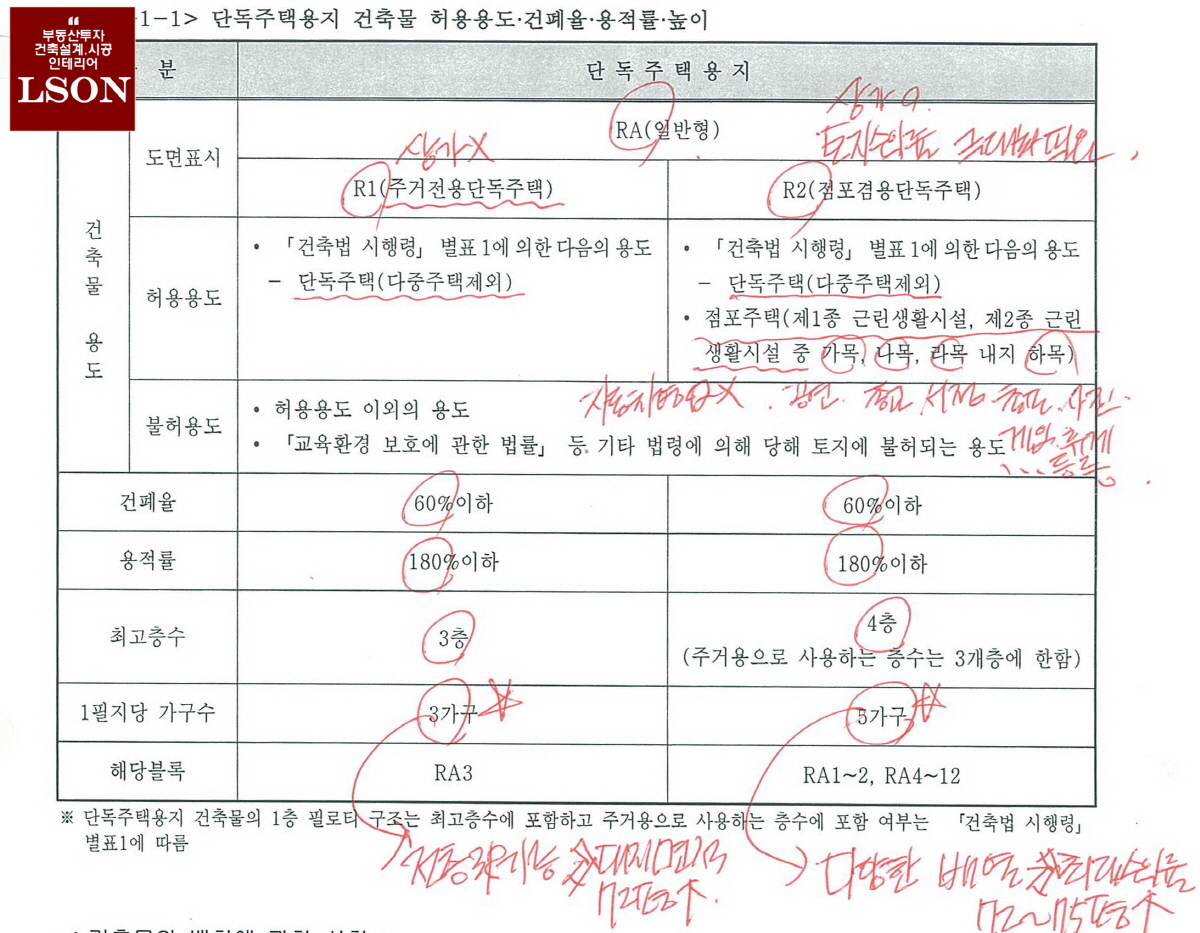 “
부동산투자
건축설계.시공
인테리어
LSON
-1-1> 단독주택용지 건축물 허용용도·건폐율·용적률·높이
분
단독주택용지
상가 O.
토지수익률
건축물 용도
도면표시
RA(일반형)
상가X
R1(주거전용단독주택)
R2(점포겸용단독주택)
허용용도
• 「건축법 시행령」 별표 1에 의한 다음의 용도
- 단독주택(다중주택제외)
• 「건축법 시행령」 별표 1에 의한 다음의 용도
- 단독주택(다중주택제외)
• 점포주택(제1종 근린생활시설, 제2종 근린
생활시설 중 가목, 나목, 라목 내지 하목)
자동차영업X . 공연. 종교. 서점. 총포. 사진.
게임. 휴게
... 등등.
불허용도
• 허용용도 이외의 용도
• 「교육환경 보호에 관한 법률」 등 기타 법령에 의해 당해 토지에 불허되는 용도
건폐율
60%이하
60%이하
용적률
180%이하
180%이하
최고층수
3층
4층
(주거용으로 사용하는 층수는 3개층에 한함)
1필지당 가구수
3가구
5가구
해당블록
RA3
RA1~2, RA4~12
※ 단독주택용지 건축물의 1층 필로티 구조는 최고층수에 포함하고 주거용으로 사용하는 층수에 포함 여부는 「건축법 시행령」
별표1에 따름
대지면적
72평↑
다양한 배열
72~75평↑